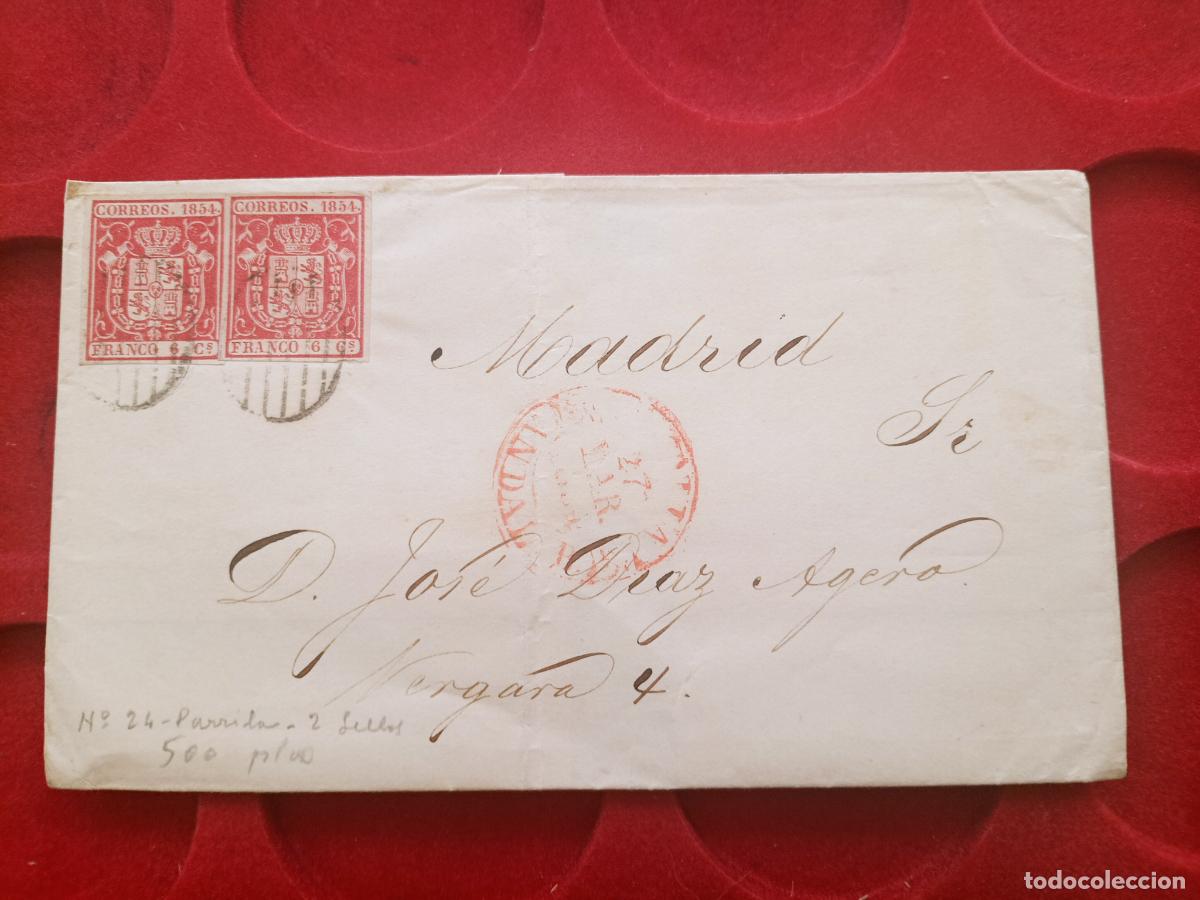 CORREOS. 1854.
FRANCO 6 Cs
CORREOS. 1854.
FRANCO 6 Cs
Madrid
Sr
27
MAR.
D. José Diaz Agero.
Vergara 4.
Nº 24 - Parrilla - 2 Sellos
500
todocoleccion